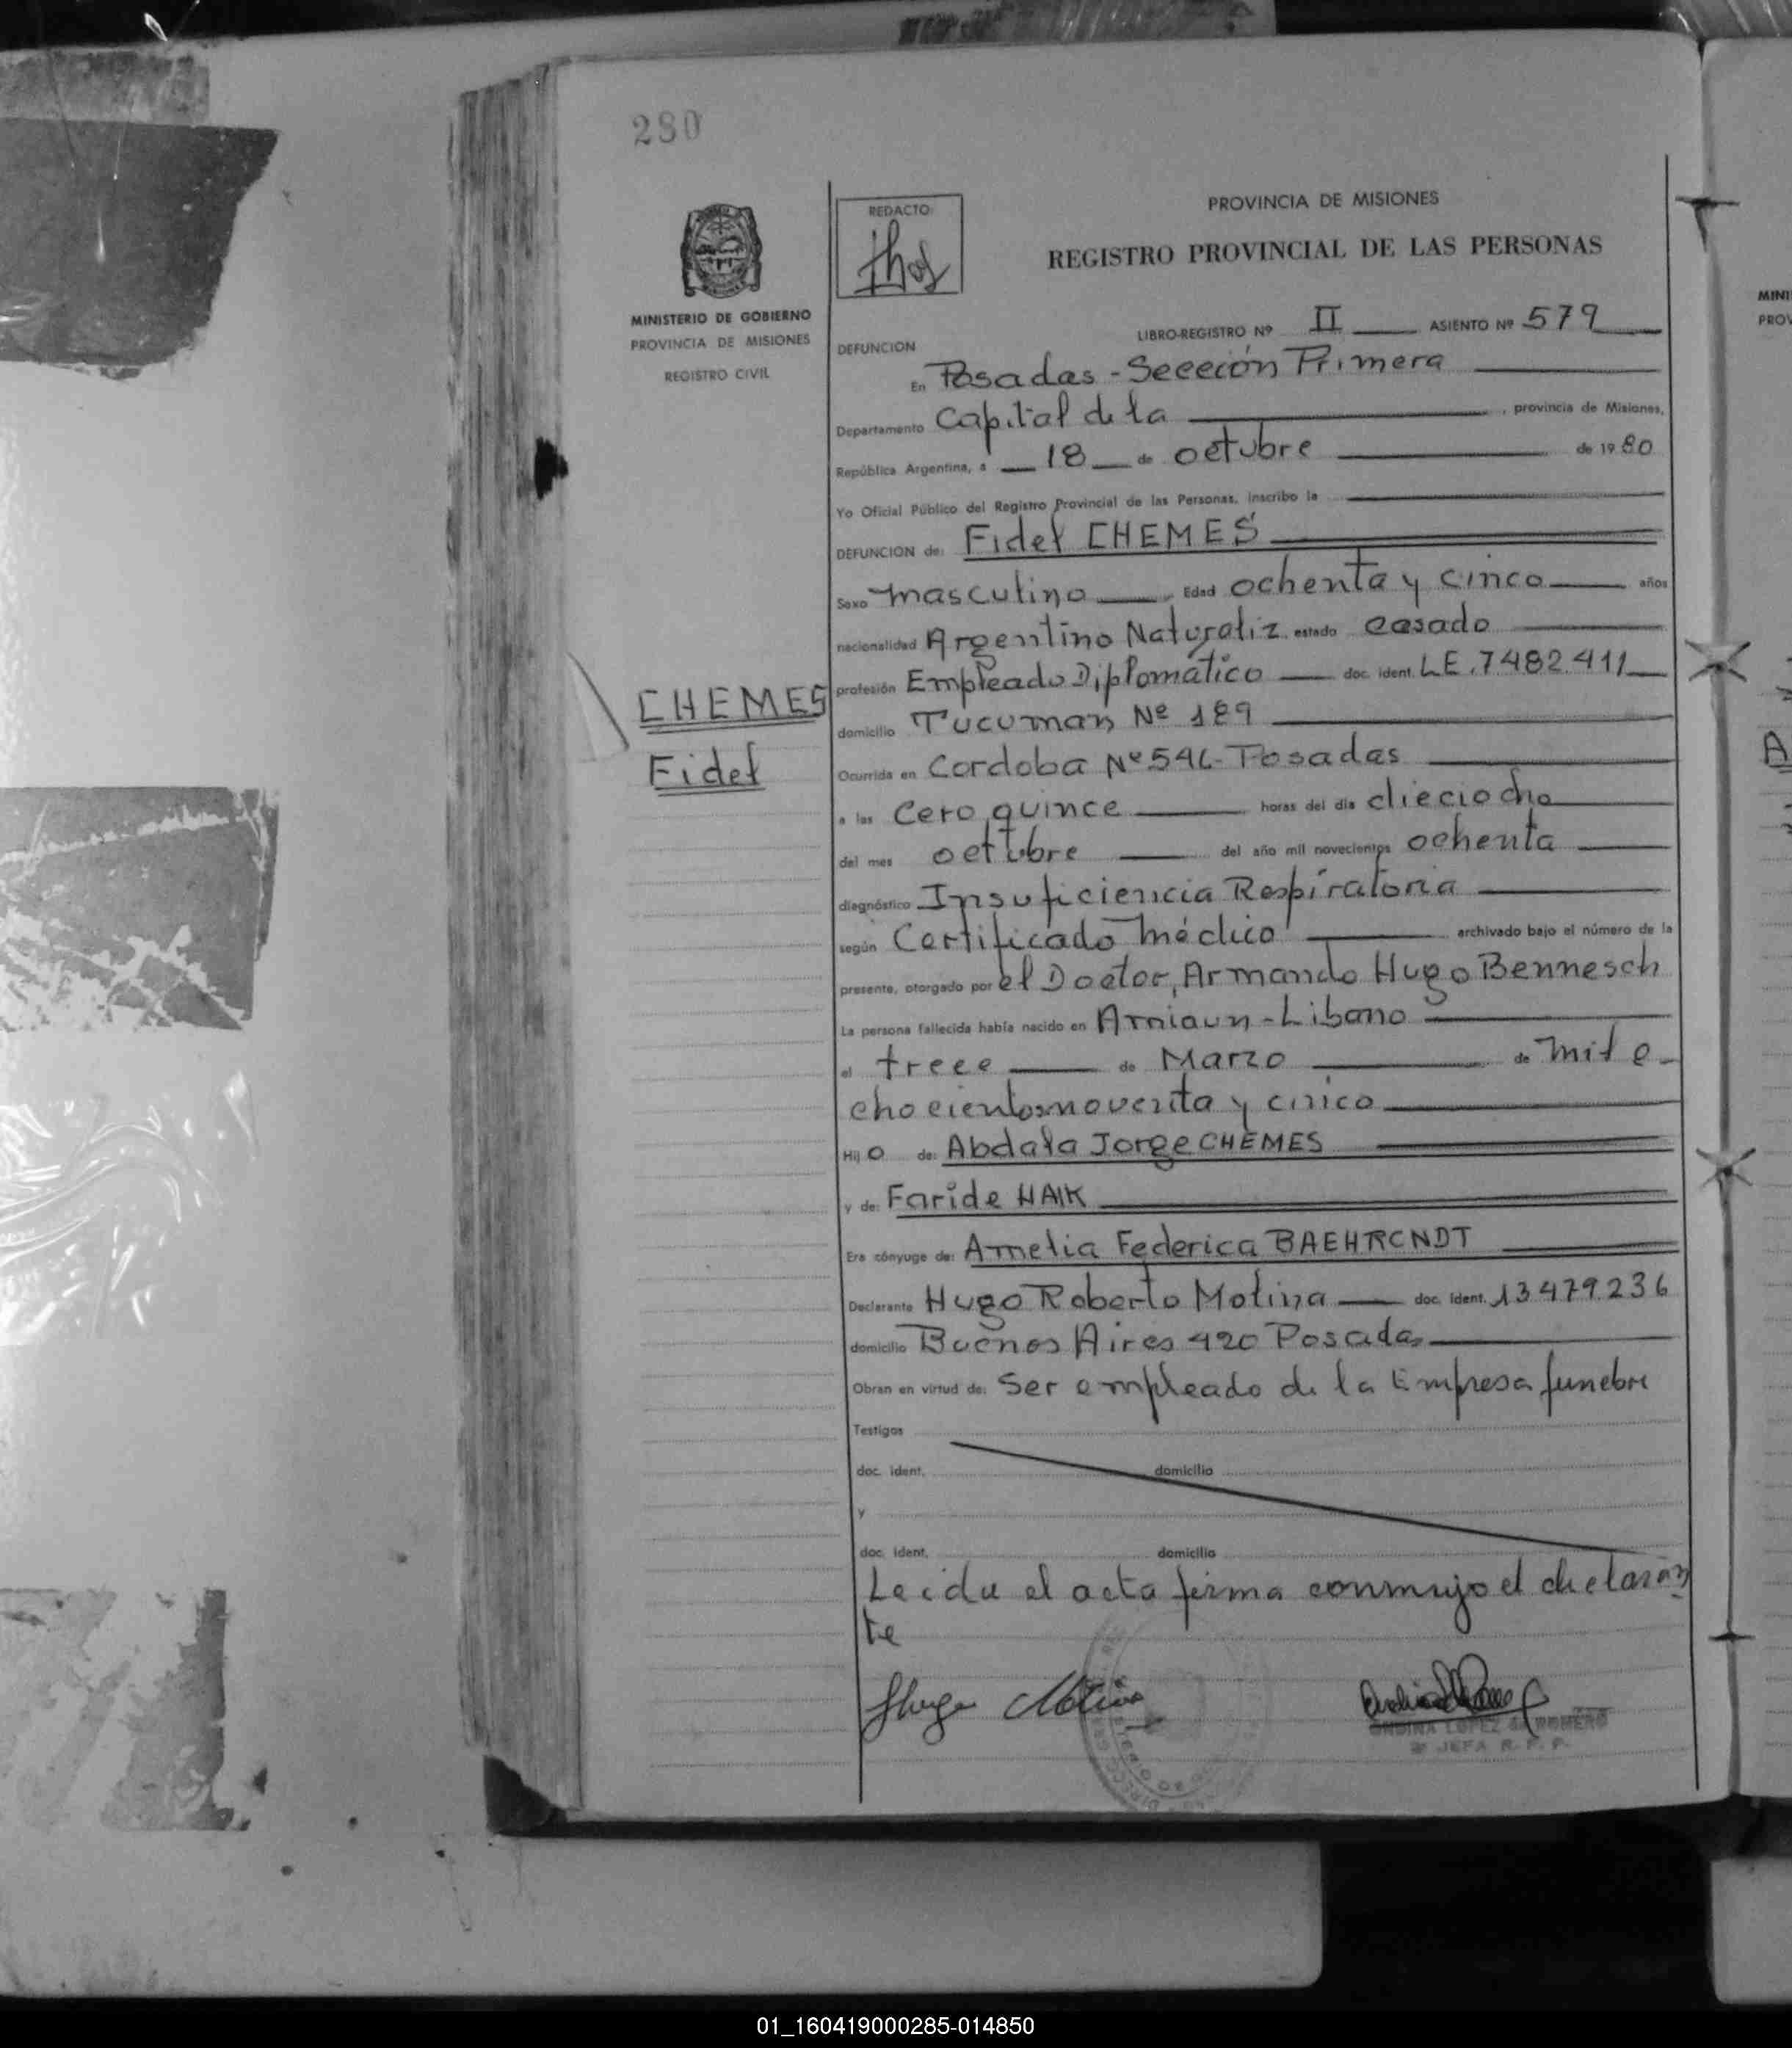 280
MINISTERIO DE GOBIERNO
PROVINCIA DE MISIONES
REGISTRO CIVIL
CHEMES
Fidel
REDACTO:
PROVINCIA DE MISIONES
REGISTRO PROVINCIAL DE LAS PERSONAS
LIBRO-REGISTRO Nº II ASIENTO Nº 579
DEFUNCION
En Posadas - Sección Primera
Departamento Capital de la , provincia de Misiones,
República Argentina, a 18 de octubre de 1980
Yo Oficial Público del Registro Provincial de las Personas, inscribo la
DEFUNCION de: Fidel CHEMES
Sexo masculino Edad ochenta y cinco años
nacionalidad Argentino Naturaliz. estado casado
profesión Empleado Diplomático doc. ident. L.E. 7482.411
domicilio Tucuman Nº 189
Ocurrida en Cordoba Nº 546 - Posadas
a las Cero quince horas del día dieciocho
del mes octubre del año mil novecientos ochenta
diagnóstico Insuficiencia Respiratoria
según Certificado médico archivado bajo el número de la
presente, otorgado por el Doctor, Armando Hugo Bennesch
La persona fallecida había nacido en Amiaun - Libano
el trece de Marzo de mil o-
chocientos noventa y cinco
Hijo de: Abdala Jorge CHEMES
y de: Faride HAIK
Era cónyuge de: Amelia Federica BAEHRENDT
Declarante Hugo Roberto Molina doc. ident. 13479.236
domicilio Buenos Aires 420 Posadas
Obran en virtud de: Ser empleado de la Empresa funebre
Testigos
doc. ident. domicilio
y
doc. ident. domicilio
Leida el acta firma conmigo el declaran
te
Hugo Molina
ONDINA LOPEZ de ROMERO
JEFA R. P. P.
MINI
PROV
A
01_160419000285-014850